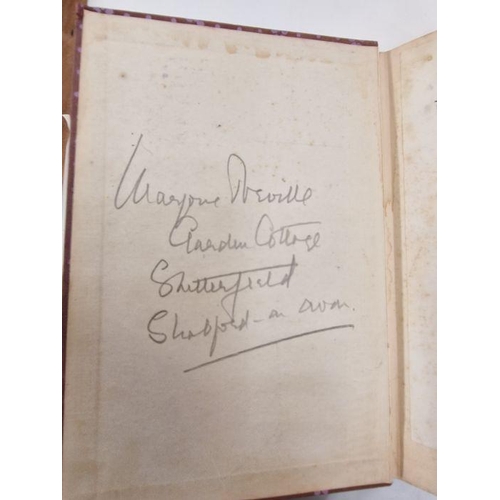 Marjorie Neville
Garden Cottage
Shatterfield
on Avon.